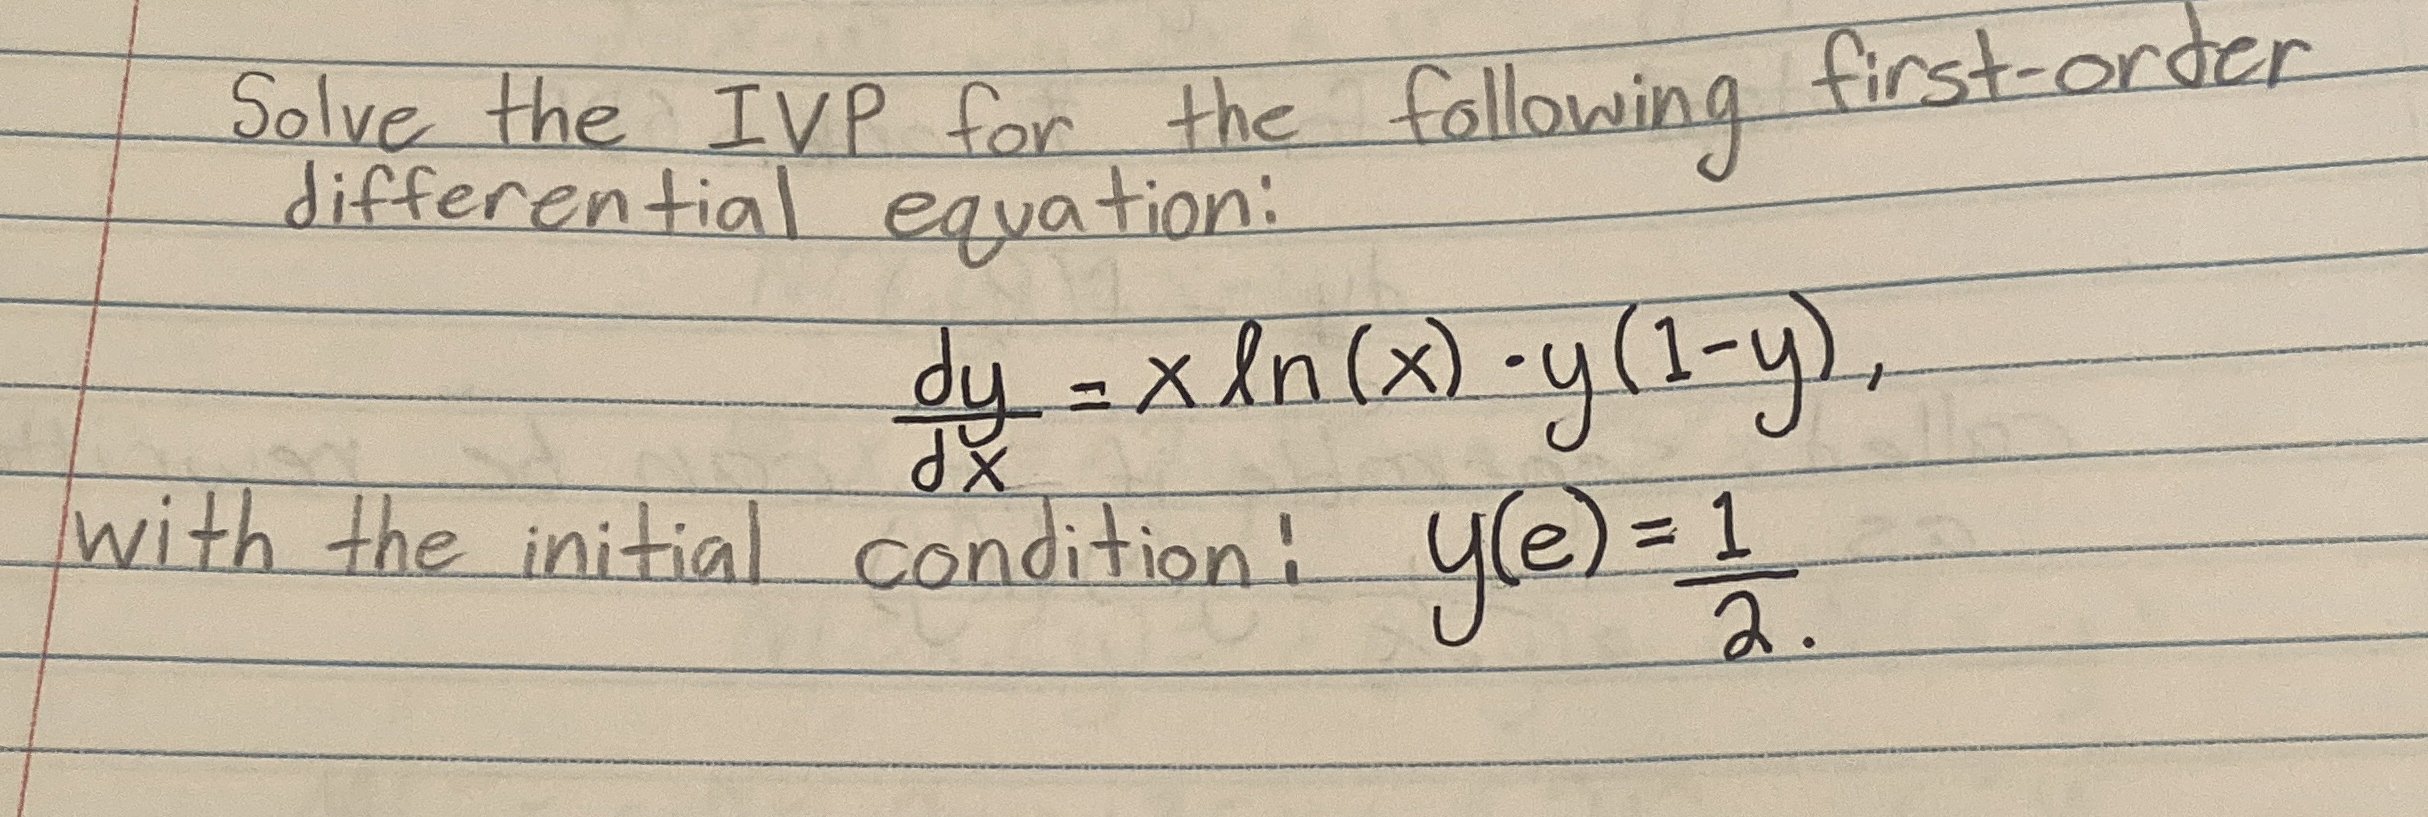 Solve the IVP for the following first-order
differential equation:
dy/dx = x ln(x) · y(1-y),
with the initial condition: y(e) = 1/2.